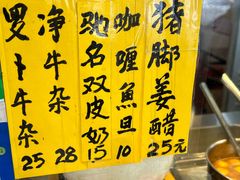 猪脚姜醋25元
咖喱魚旦10
驰名双皮奶15
净牛杂28
罗卜牛杂25